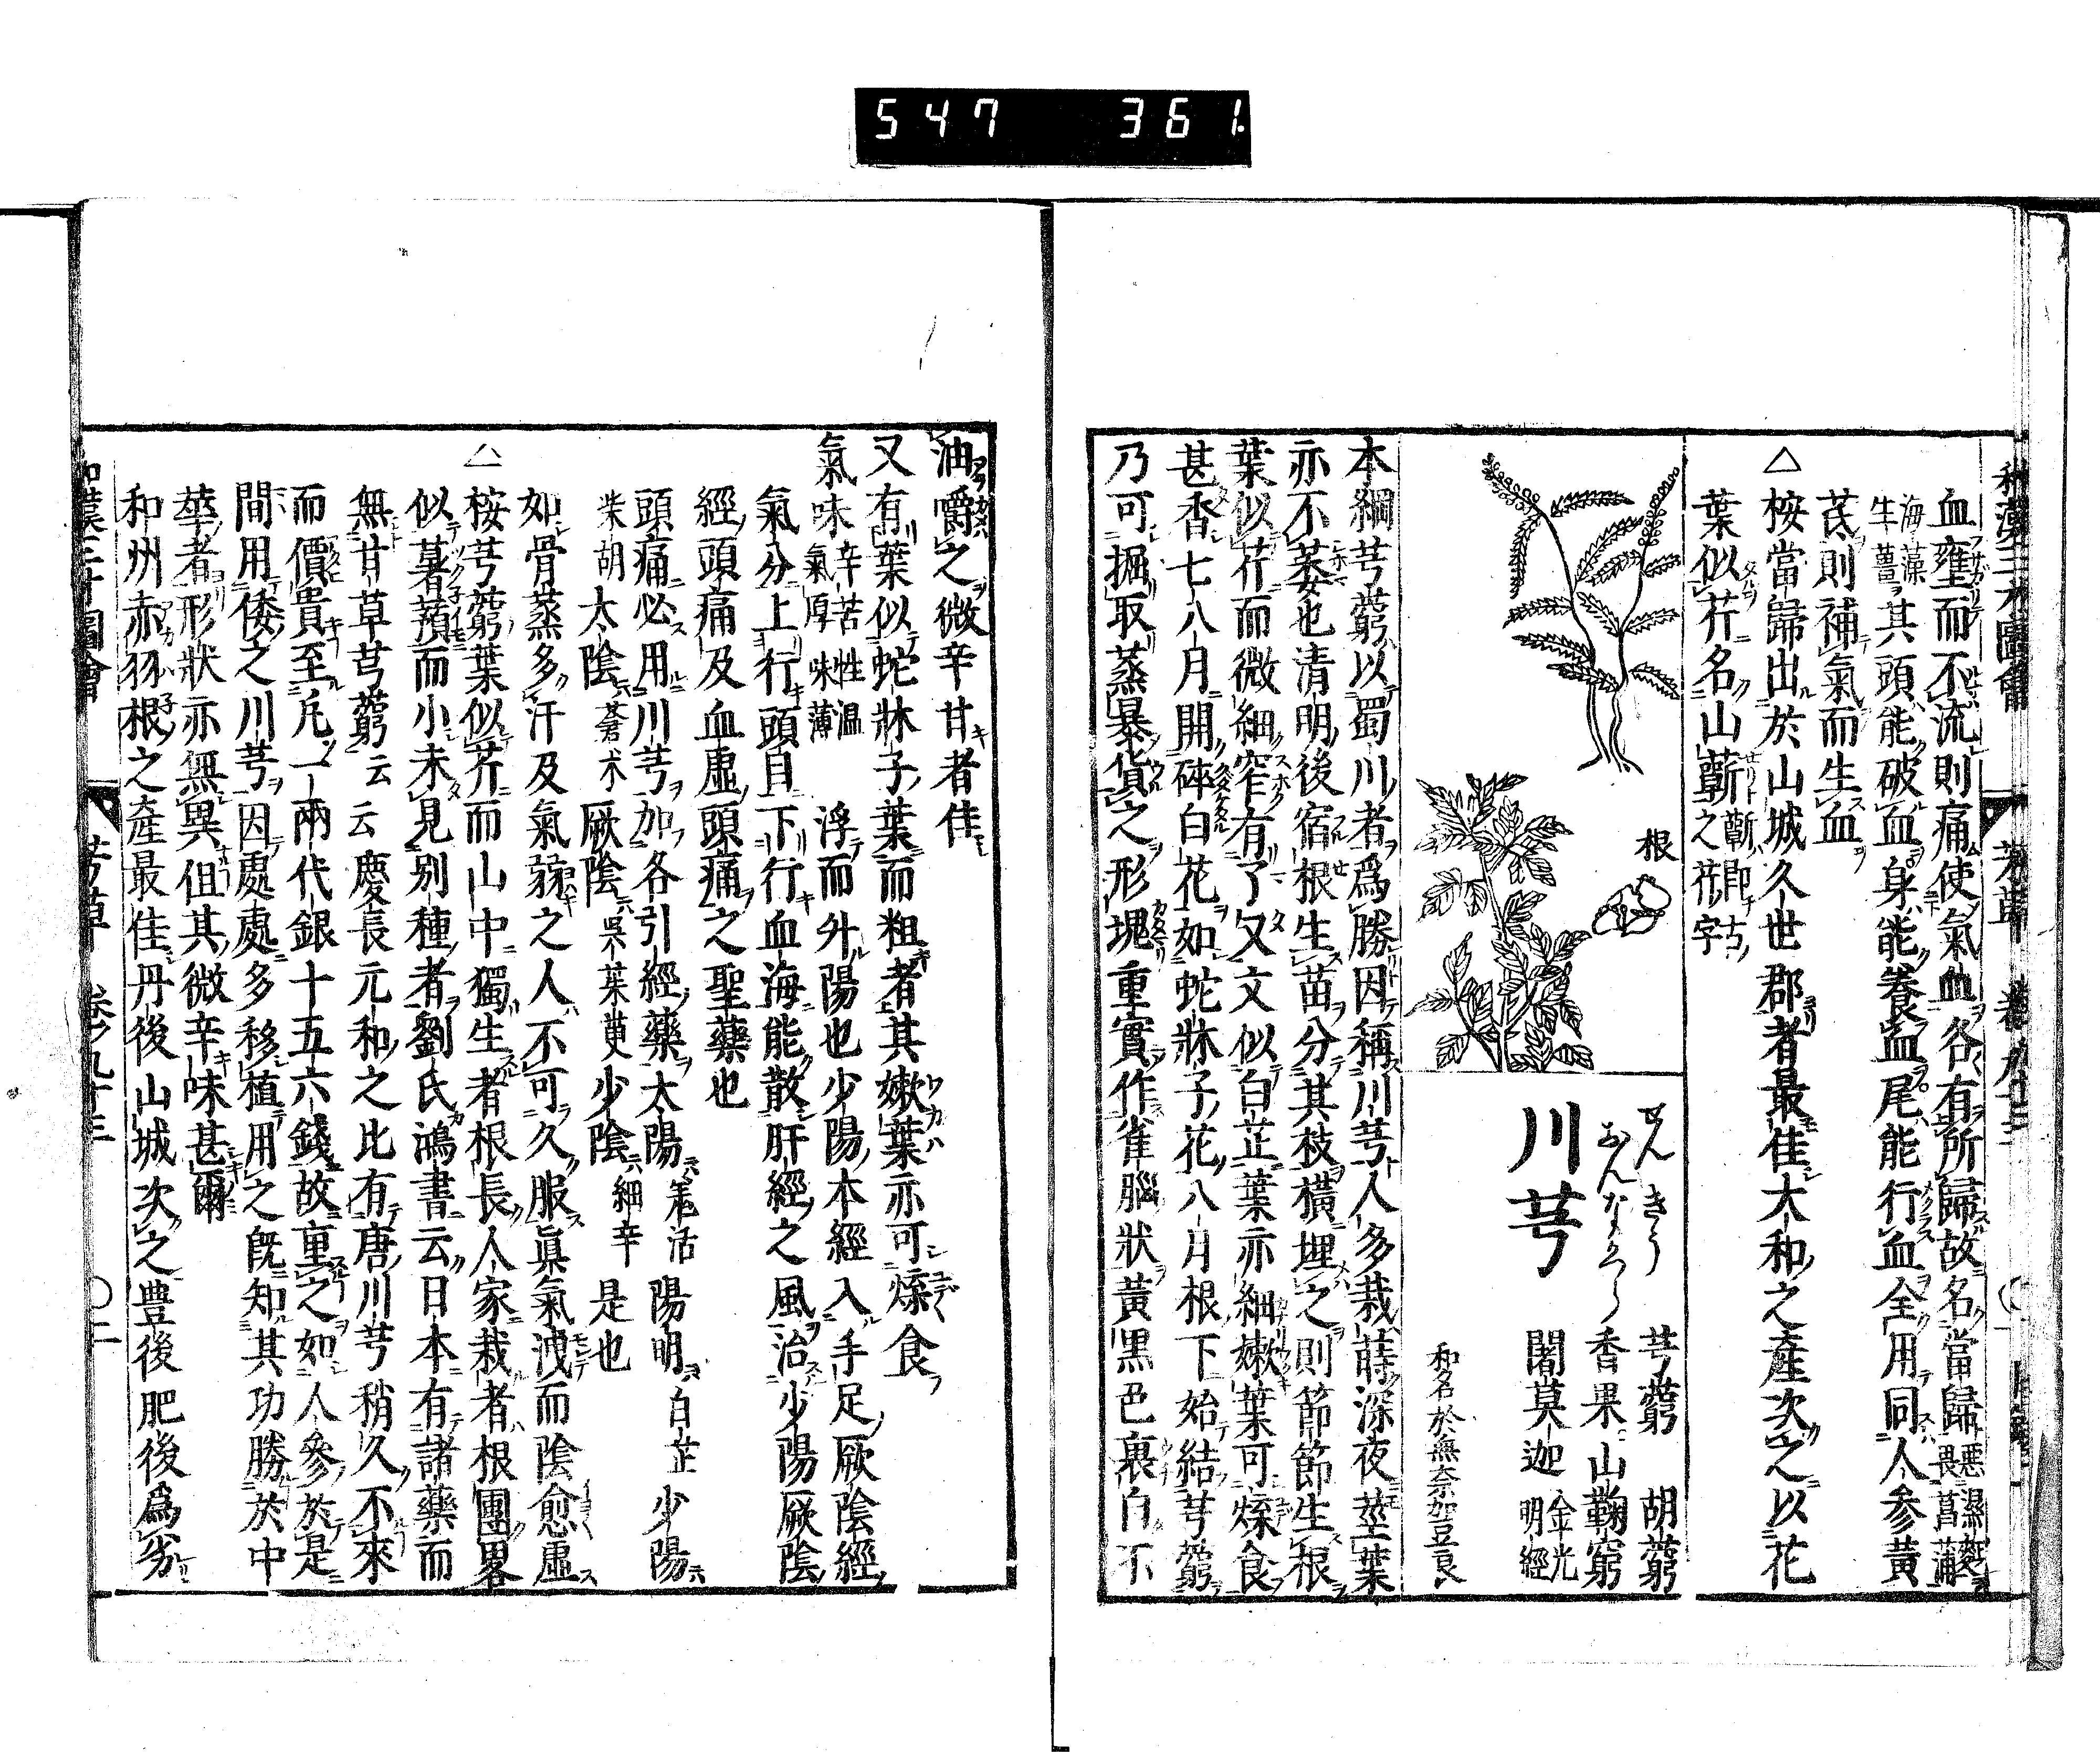 547 361
血壅而不流則痛使氣血各有所歸故名當歸 惡濕麪 畏菖蒲
海藻 生薑 其頭能破血身能養血尾能行血全用同人参黃
芪則補氣而生血
△ 桉當歸出於山城久世郡者最佳大和之產次之以花
葉似芹名山蘄 蘄即古之芹字
根
せんきう
おんなかつら
川芎
芎藭 胡藭
香果 山鞠窮
闍莫迦 金光明經
和名於無奈加豆良
本綱芎藭以蜀川者爲勝因稱川芎人多栽蒔深夜莖葉
亦不萎也清明後宿根生苗分其枝橫埋之則節節生根
葉似芹而微細窄有了又文似白芷葉亦細嫩葉可煠食
甚香七八月開碎白花如蛇牀子花八月根下始結芎藭
乃可掘取蒸暴貨之形塊重實作雀腦狀黃黑色裏白不
油嚼之微辛甘者佳
又有葉似蛇牀子葉而粗者其嫩葉亦可煠食
氣味 辛苦性温 氣厚味薄 浮而外陽也少陽本經入手足厥陰經
氣分上行頭目下行血海能散肝經之風治少陽厥陰
經頭痛及血虛頭痛之聖藥也
頭痛必用川芎加各引經藥太陽 羗活 陽明 白芷 少陽
柴胡 太陰 蒼朮 厥陰 吳茱萸 少陰 細辛 是也
如骨蒸多汗及氣弱之人不可久服眞氣洩而陰愈虛
△ 桉芎藭葉似芹而山中獨生者根長人家栽者根團畧
似蒟蒻而小未見別種者劉氏鴻書云日本有諸藥而
無甘草芎藭云云慶長元和之比有唐川芎稍久不來
而價貴至凡一兩代銀十五六錢故重之如人參於是
間用倭之川芎因處處多移植用之旣知其功勝於中
華者形狀亦無異但其微辛味甚爾
和州赤羽根之產最佳丹後山城次之豊後肥後爲劣
和漢三才圖會 芳草 卷ノ九十三 〇二